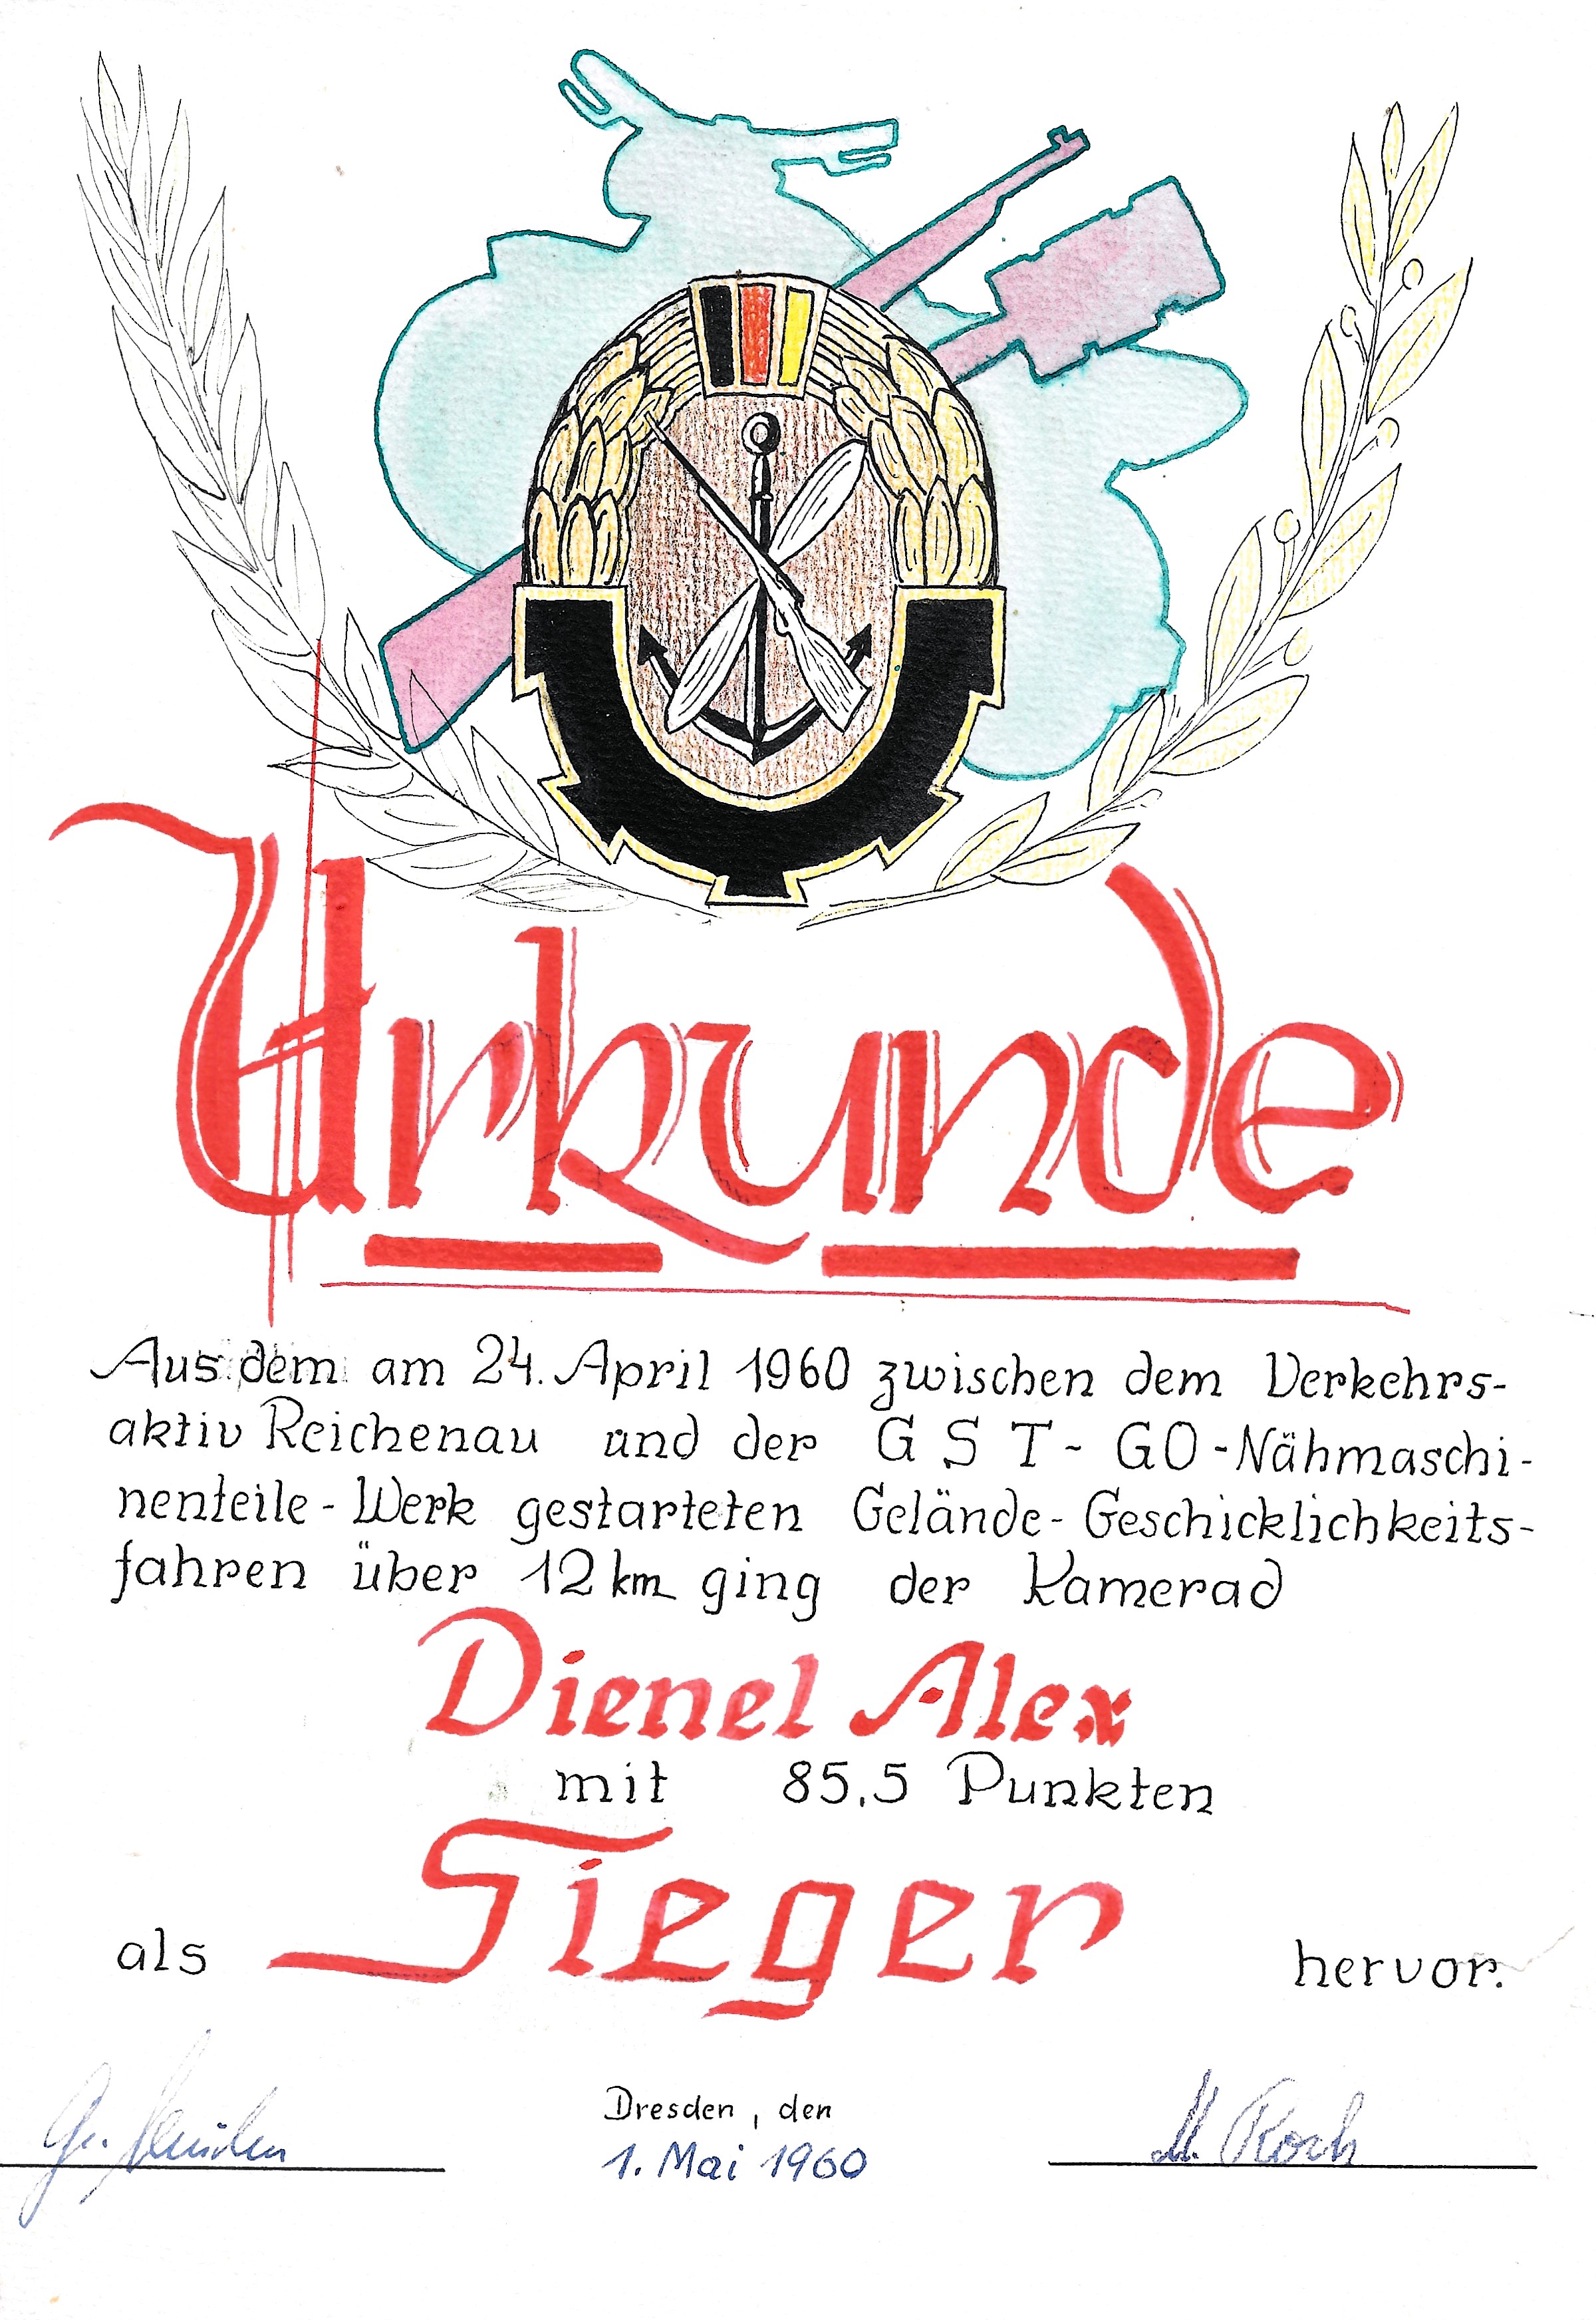 Urkunde
Aus dem am 24. April 1960 zwischen dem Verkehrs-
aktiv Reichenau und der G S T - GO - Nähmaschi-
nenteile - Werk gestarteten Gelände - Geschicklichkeits-
fahren über 12 km ging der Kamerad
Dienel Alex
mit 85,5 Punkten
als Sieger hervor.
Dresden, den
1. Mai 1960
M. Koch